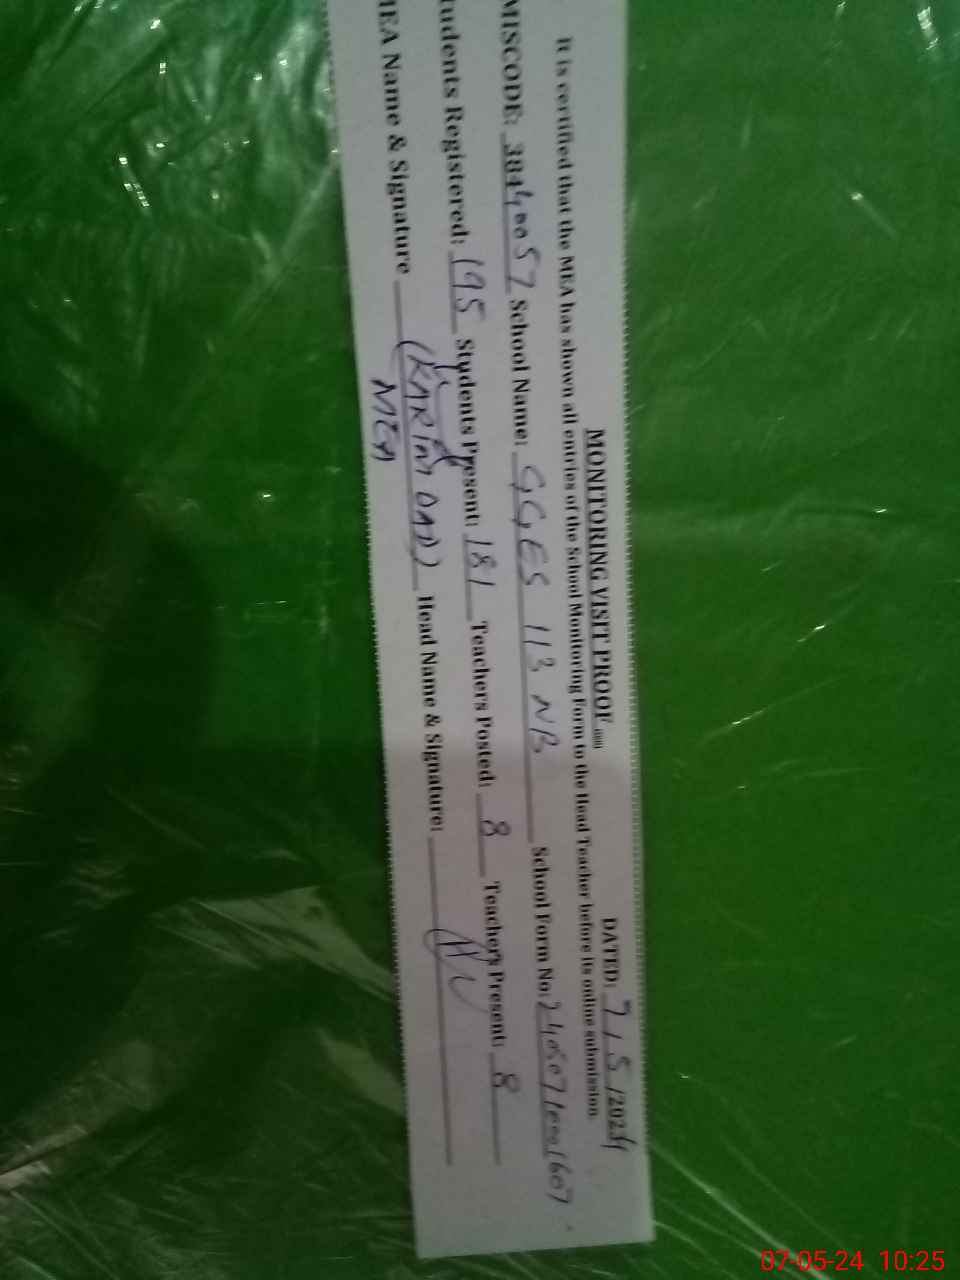 MONITORING VISIT PROOF
DATED: 7/5/2024
It is certified that the MEA has shown all entries of the School Monitoring Form to the Head Teacher before its online submission.
MISCODE: 38440057 School Name: GGES 113 NB School Form No: 2405071001607
tudents Registered: 195 Students Present: 181 Teachers Posted: 8 Teachers Present: 8
MEA Name & Signature (KARIM DAD) Head Name & Signature:
MEA
07-05-24 10:25